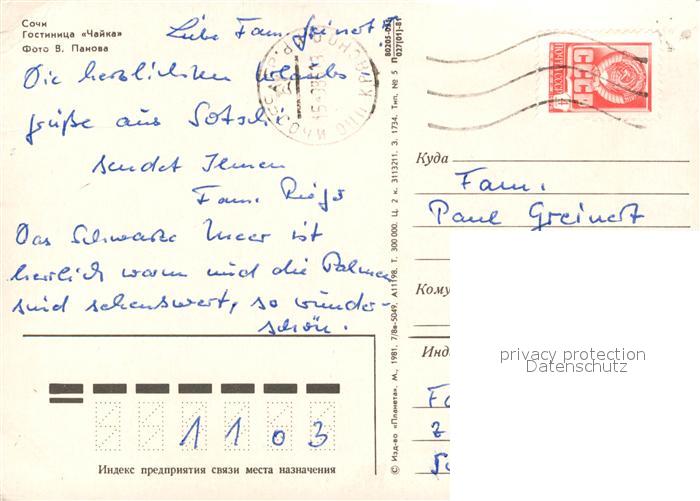 Сочи
Гостиница «Чайка»
Фото В. Панова
Liebe Fam. Greinert
Die herzlichsten Urlaubs
grüße aus Sotschi
sendet Ihnen
Fam.
Das Schwarze Meer ist
herrlich warm und die Palmen
sind sehenswert, so wunder-
schön.
1 1 0 3
Индекс предприятия связи места назначения
© Изд-во «Планета». М., 1981. 7/8в-5049. А11198. Т. 300 000. Ц. 2 к. З. 1734. Тип. № 5
ПОЧТА СССР
СССР
Куда
Fam.
Paul Greinert
Кому
Инд
privacy protection
Datenschutz